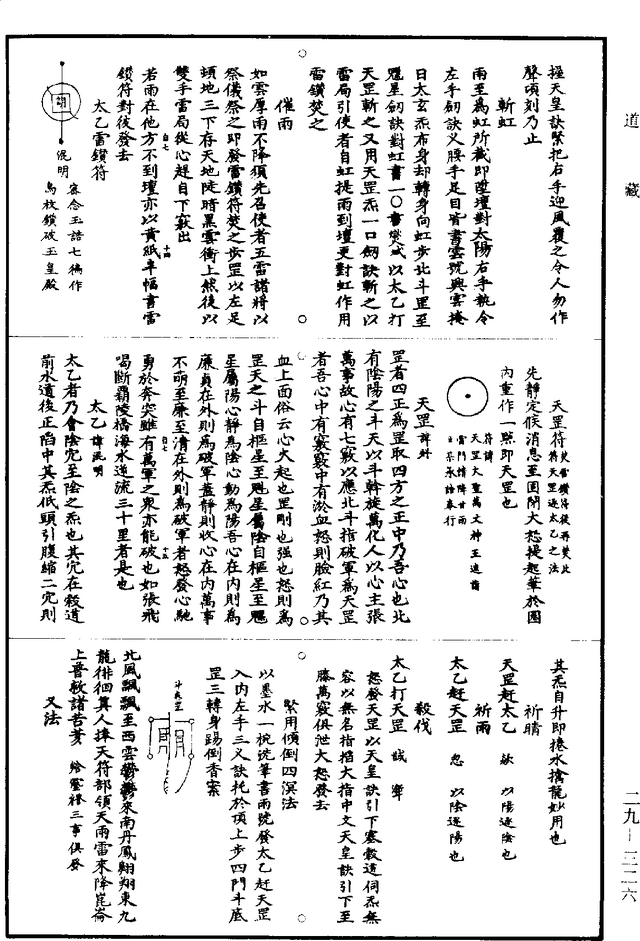 道藏
握天皇訣緊把右手迎風覆之令人勿作
聲頃刻乃止
斬虹
雨至為虹所截即陞壇對太陽右手執令
左手劒訣乂腰手足目皆書雲號與雲捲
日太玄炁布身却轉身向虹步北斗罡至
魁星劒訣對虹書一〇書煞戒以太乙打
天罡斬之又用天罡炁一口劒訣斬之以
雷局引使者自虹提雨到壇更對虹作用
雷鑽焚之
催雨
如雲厚雨不降須先召使者五雷諸將以
祭儀祭之即發雷鑽符焚之步罡以左足
頓地三下存天地陡暗黑雲衝上然後以
雙手雷局從心趕自下竅出
若雨在他方不到壇亦以黃紙半幅書雷
鑽符對彼發去
太乙雷鑽符
明
侃明
密念玉誥七徧作
烏枚鑽破玉皇殿
天罡符 焚雷鑽符後再焚此
符天罡逐太乙之法
先靜定候消息至圊閉大怒提起筆於圈
內重作一點即天罡也
符諱
天罡大聖萬丈神王迪詣
雷門請降甘雨
主茶承誥奉行
天罡 諱升
罡者四正為罡取四方之正中乃吾心也北
有陰陽之斗天以斗斡旋萬化人以心主張
萬事故心有七竅以應北斗指破軍為天罡
者吾心中有竅竅中有淤血怒則臉紅乃其
血上面俗云心火起也罡剛也强也怒則為
罡天之斗自樞星至魁星屬陰自樞星至魒
星屬陽心靜為陰心動為陽吾心在內則為
廉貞在外則為破軍蓋靜則收心在內萬事
不萌至廉至清在外則為破軍者怒發心馳
勇於奔突雖有萬軍之衆亦能破也如張飛
喝斷霸陵橋海水逆流三十里者是也
太乙 諱侃明
太乙者乃會陰穴至陰之炁也其穴在穀道
前水道後正陷中其炁低頭引腹縮二穴則
其炁自升即捲水擒龍妙用也
祈晴
天罡赶太乙 欲 以陽逐陰也
祈雨
太乙赶天罡 忽 以陰逐陽也
殺伐
太乙打天罡 諴 灣
怒發天罡以天皇訣引下塞穀道伺炁無
容以無名指搯大指中文天皇訣引下至
膝萬竅俱泄大怒發去
緊用傾倒四溟法
以墨水一椀詵筆書雨號發太乙赶天罡
入內左手三乂訣托於頂上步四門斗底
罡三轉身踢倒香案
北風飄飄至西雲鬱鬱來南丹鳳翱翔東九
龍徘徊真人捧天符部領天雨雷來降崑崙
上普救諸苦荄 給靈祿三事俱發
又法
二九—二二六